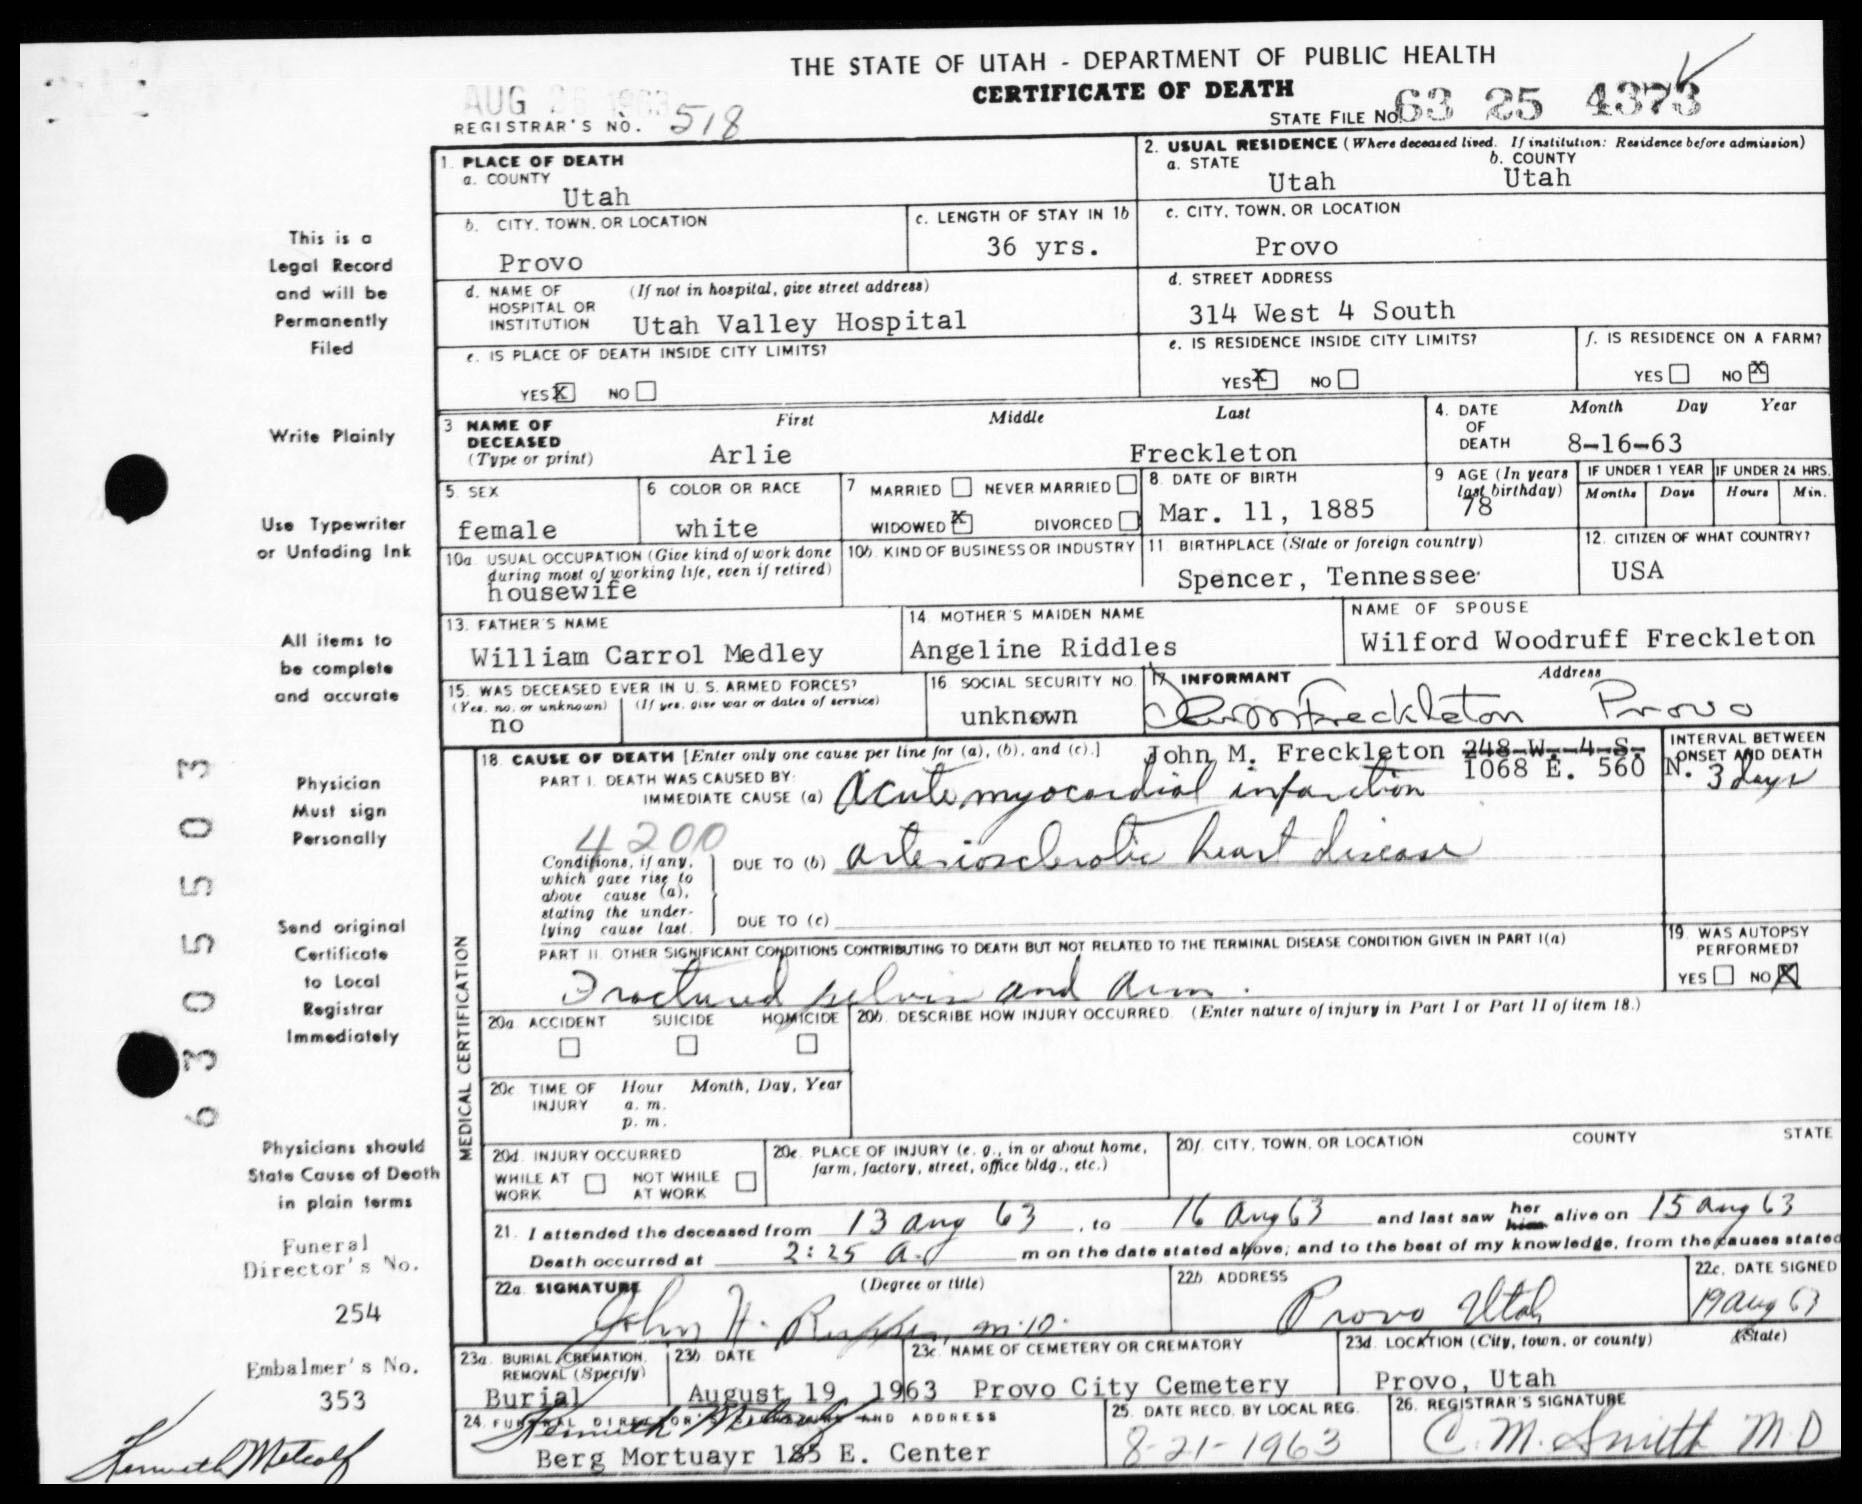 THE STATE OF UTAH - DEPARTMENT OF PUBLIC HEALTH
CERTIFICATE OF DEATH
AUG 26 1963
REGISTRAR'S NO. 518
STATE FILE NO. 63 25 4373
1. PLACE OF DEATH
a. COUNTY
Utah
2. USUAL RESIDENCE (Where deceased lived. If institution: Residence before admission)
a. STATE b. COUNTY
Utah Utah
b. CITY, TOWN, OR LOCATION
Provo
c. LENGTH OF STAY IN 1b
36 yrs.
c. CITY, TOWN, OR LOCATION
Provo
d. NAME OF HOSPITAL OR INSTITUTION (If not in hospital, give street address)
Utah Valley Hospital
d. STREET ADDRESS
314 West 4 South
e. IS PLACE OF DEATH INSIDE CITY LIMITS?
YES X NO
e. IS RESIDENCE INSIDE CITY LIMITS?
YES X NO
f. IS RESIDENCE ON A FARM?
YES NO X
3 NAME OF DECEASED (Type or print)
First Middle Last
Arlie Freckleton
4. DATE OF DEATH
Month Day Year
8-16-63
5. SEX
female
6 COLOR OR RACE
white
7 MARRIED NEVER MARRIED
WIDOWED X DIVORCED
8. DATE OF BIRTH
Mar. 11, 1885
9 AGE (In years last birthday)
78
IF UNDER 1 YEAR
Months Days
IF UNDER 24 HRS.
Hours Min.
10a. USUAL OCCUPATION (Give kind of work done during most of working life, even if retired)
housewife
10b. KIND OF BUSINESS OR INDUSTRY
11 BIRTHPLACE (State or foreign country)
Spencer, Tennessee
12. CITIZEN OF WHAT COUNTRY?
USA
13. FATHER'S NAME
William Carrol Medley
14. MOTHER'S MAIDEN NAME
Angeline Riddles
NAME OF SPOUSE
Wilford Woodruff Freckleton
15. WAS DECEASED EVER IN U. S. ARMED FORCES?
(Yes, no, or unknown) (If yes, give war or dates of service)
no
16 SOCIAL SECURITY NO.
unknown
17 INFORMANT Address
Freckleton Provo
John M. Freckleton 248 W. 4 S.
1068 E. 560 N.
18. CAUSE OF DEATH [Enter only one cause per line for (a), (b), and (c).]
INTERVAL BETWEEN ONSET AND DEATH
PART I. DEATH WAS CAUSED BY:
IMMEDIATE CAUSE (a) Acute myocardial infarction 3 days
4200
Conditions, if any, which gave rise to above cause (a), stating the underlying cause last.
DUE TO (b) arteriosclerotic heart disease
DUE TO (c)
PART II. OTHER SIGNIFICANT CONDITIONS CONTRIBUTING TO DEATH BUT NOT RELATED TO THE TERMINAL DISEASE CONDITION GIVEN IN PART I(a)
Fractured pelvis and arm.
19. WAS AUTOPSY PERFORMED?
YES NO X
20a ACCIDENT SUICIDE HOMICIDE
20b. DESCRIBE HOW INJURY OCCURRED. (Enter nature of injury in Part I or Part II of item 18.)
20c TIME OF INJURY Hour Month, Day, Year
a. m.
p. m.
20d. INJURY OCCURRED
WHILE AT WORK NOT WHILE AT WORK
20e. PLACE OF INJURY (e. g., in or about home, farm, factory, street, office bldg., etc.)
20f. CITY, TOWN, OR LOCATION COUNTY STATE
21. I attended the deceased from 13 Aug 63, to 16 Aug 63 and last saw her him alive on 15 Aug 63
Death occurred at 2:25 a. m on the date stated above; and to the best of my knowledge, from the causes stated
22a. SIGNATURE (Degree or title)
John H. M.D.
22b. ADDRESS
Provo Utah
22c. DATE SIGNED
19 Aug 63
23a. BURIAL, CREMATION, REMOVAL (Specify)
Burial
23b. DATE
August 19, 1963
23c. NAME OF CEMETERY OR CREMATORY
Provo City Cemetery
23d. LOCATION (City, town, or county) (State)
Provo, Utah
24. FUNERAL DIRECTOR'S SIGNATURE AND ADDRESS
Kenneth Metcalf
Berg Mortuayr 185 E. Center
25. DATE RECD. BY LOCAL REG.
8-21-1963
26. REGISTRAR'S SIGNATURE
C. M. Smith M D
MEDICAL CERTIFICATION
This is a
Legal Record
and will be
Permanently
Filed
Write Plainly
Use Typewriter
or Unfading Ink
All items to
be complete
and accurate
Physician
Must sign
Personally
Send original
Certificate
to Local
Registrar
Immediately
Physicians should
State Cause of Death
in plain terms
Funeral
Director's No.
254
Embalmer's No.
353
Kenneth Metcalf
6305503